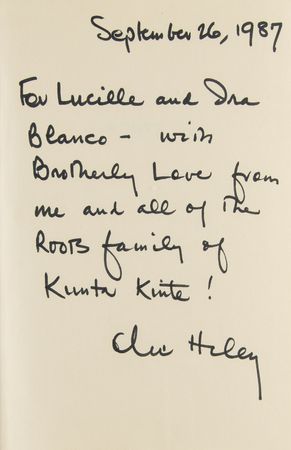 September 26, 1987
For Lucille and Ira
Blanco - with
Brotherly Love from
me and all of the
Roots family of
Kunta Kinte!
Alex Haley